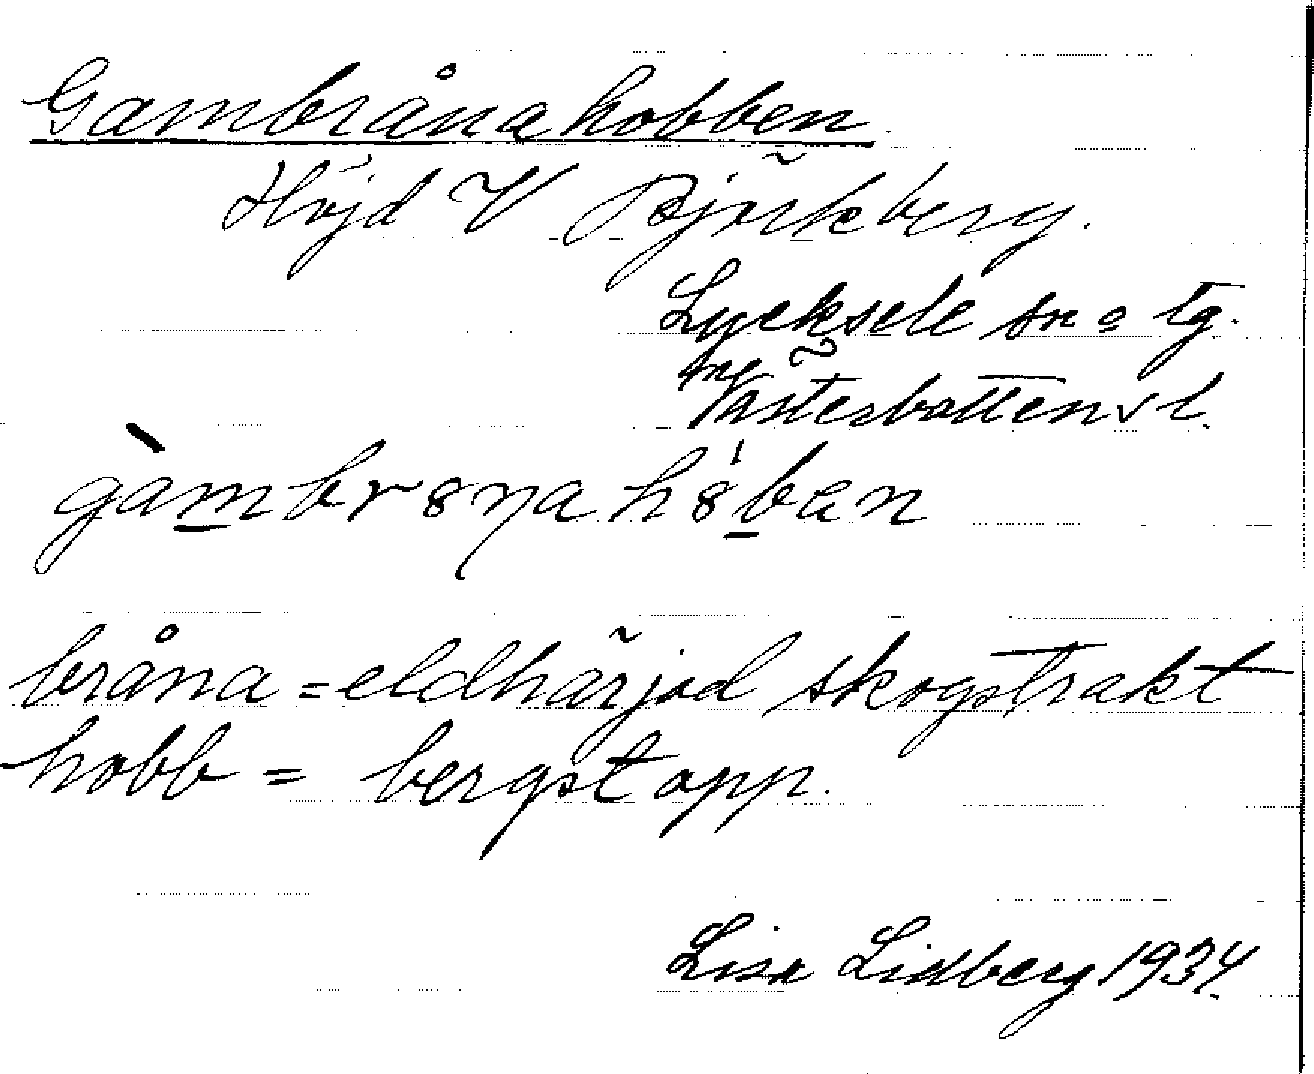 Gambrånahobben
Höjd V Björkberg.
Lycksele sn o tg.
Västerbottens l.
gàmbrȣnahȣ́ben
bråna = eldhärjad skogstrakt
hobb = bergstopp.
Lisa Lidberg 1934.